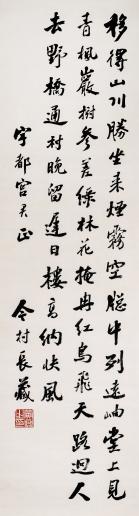 移得山川勝坐来煙霧空牕中列遠岫堂上見
青楓巖樹参差緑林花掩冉紅鳥飛天路迥人
去野橋通村晚留遲日樓高納快風
宇都宮君正 今村長藏